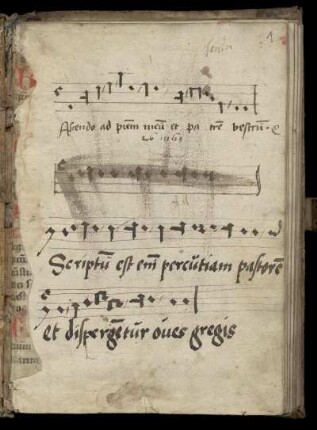 1
Ascendo ad prem̄ meū et pa trē vestrū · &
Scriptū est em̄ percutiam pastorē
et dispergētur oues gregis